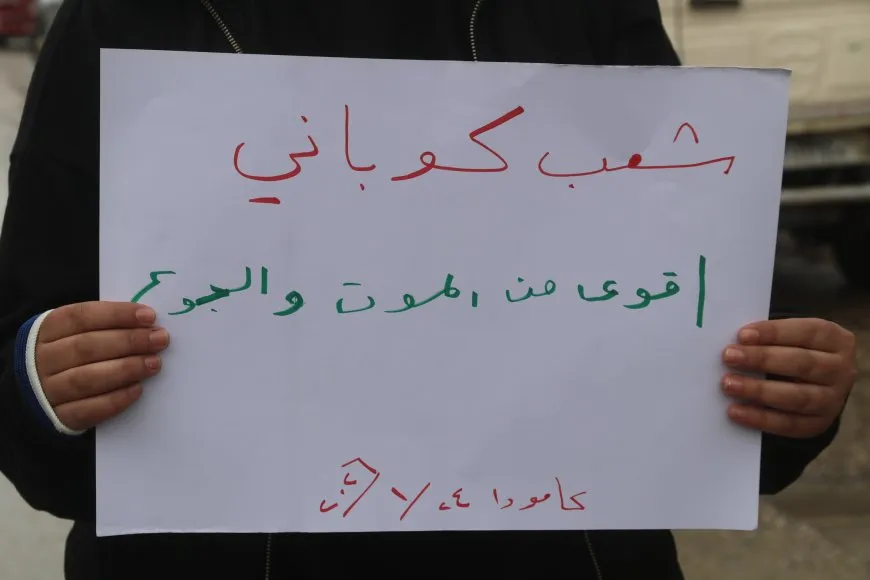 شعب كوباني
اقوى من الموت والجوع
عامودا ٢٤ / ١ /